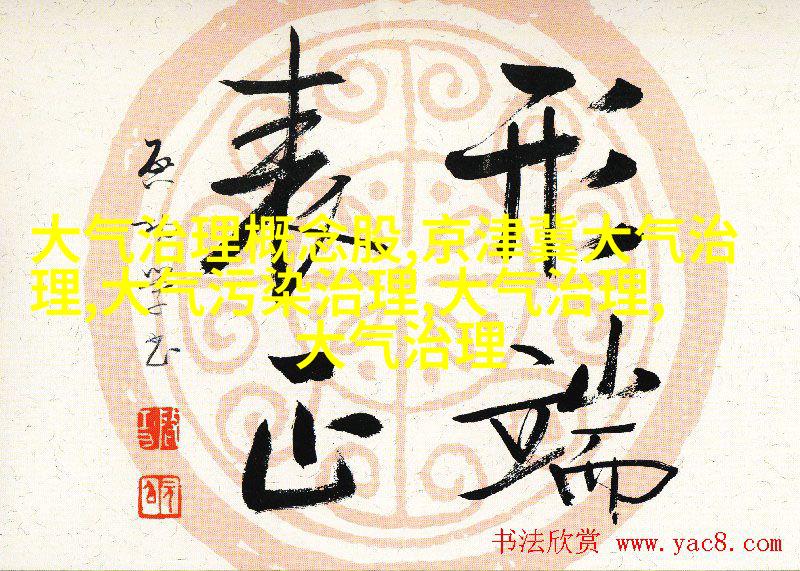 形端
表正
启功学书
大气治理概念股,京津冀大气治
理,大气污染治理,大气治理,
大气治理
书法欣赏 www.yac8.com